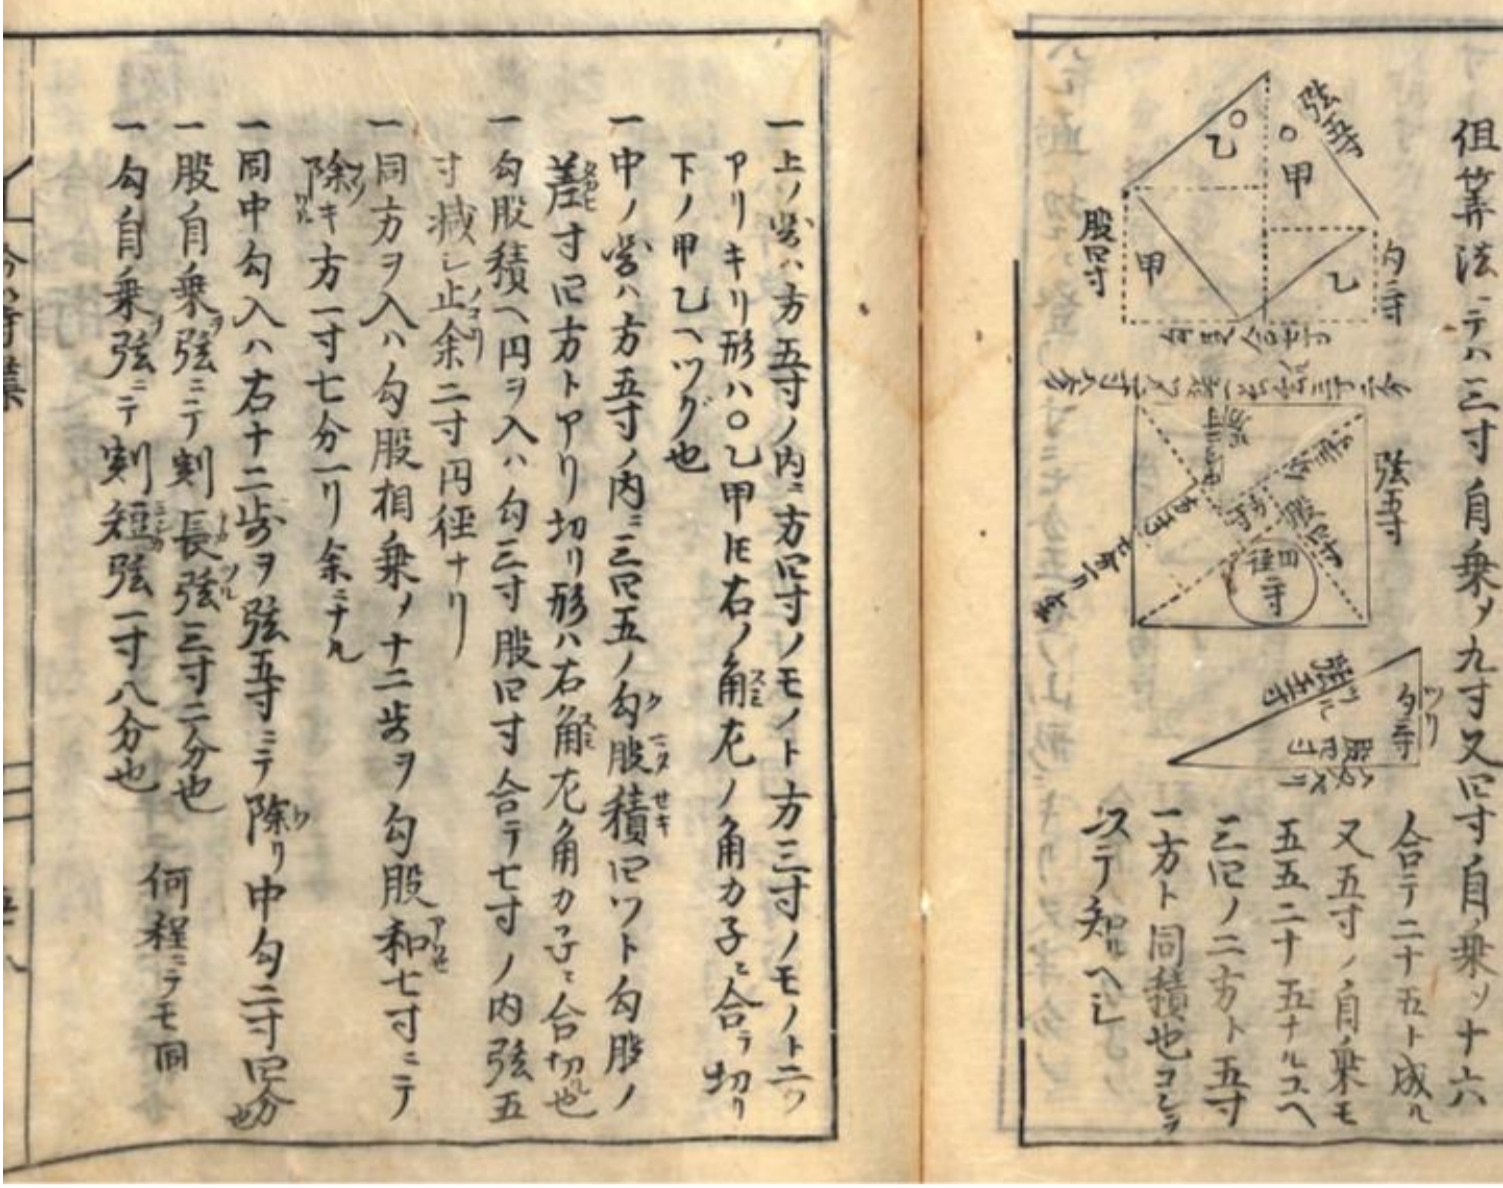 但算法ニテハ三寸自乗〆九寸又四寸自乗〆十六
合テ二十五ト成ル
又五寸ノ自乗モ
五五二十五ナルユヘ
三四ノ二方ト五寸
一方ト同積也コレヲ
以テ知ルヘシ
弦五寸
乙
甲
勾三寸
股四寸
甲
乙
弦五寸
股四寸
円径二寸
勾三寸
弦五寸
股四寸
一上ノ図ハ方五寸ノ内ニ方四寸ノモノト方三寸ノモノト二ツ
アリキリ形ハ〇乙甲ヒ右ノ角左ノ角カ子ニ合テ切リ
下ノ甲乙ヘツグ也
一中ノ図ハ方五寸ノ内ニ三四五ノ勾股積四ツト勾股ノ
差寸四方トアリ切リ形ハ右角左角カ子ニ合切ル也
一勾股積ヘ円ヲ入ハ勾三寸股四寸合テ七寸ノ内弦五
寸減シ止余二寸円径ナリ
一同方ヲ入ハ勾股相乗〆十二歩ヲ勾股和七寸ニテ
除キ方一寸七分一リ余ニナル
一同中勾入ハ右十二歩ヲ弦五寸ニテ除リ中勾二寸四分也
一股自乗ヲ弦ニテ割長弦三寸二分也
一勾自乗ヲ弦ニテ割短弦一寸八分也
何程ニテモ同